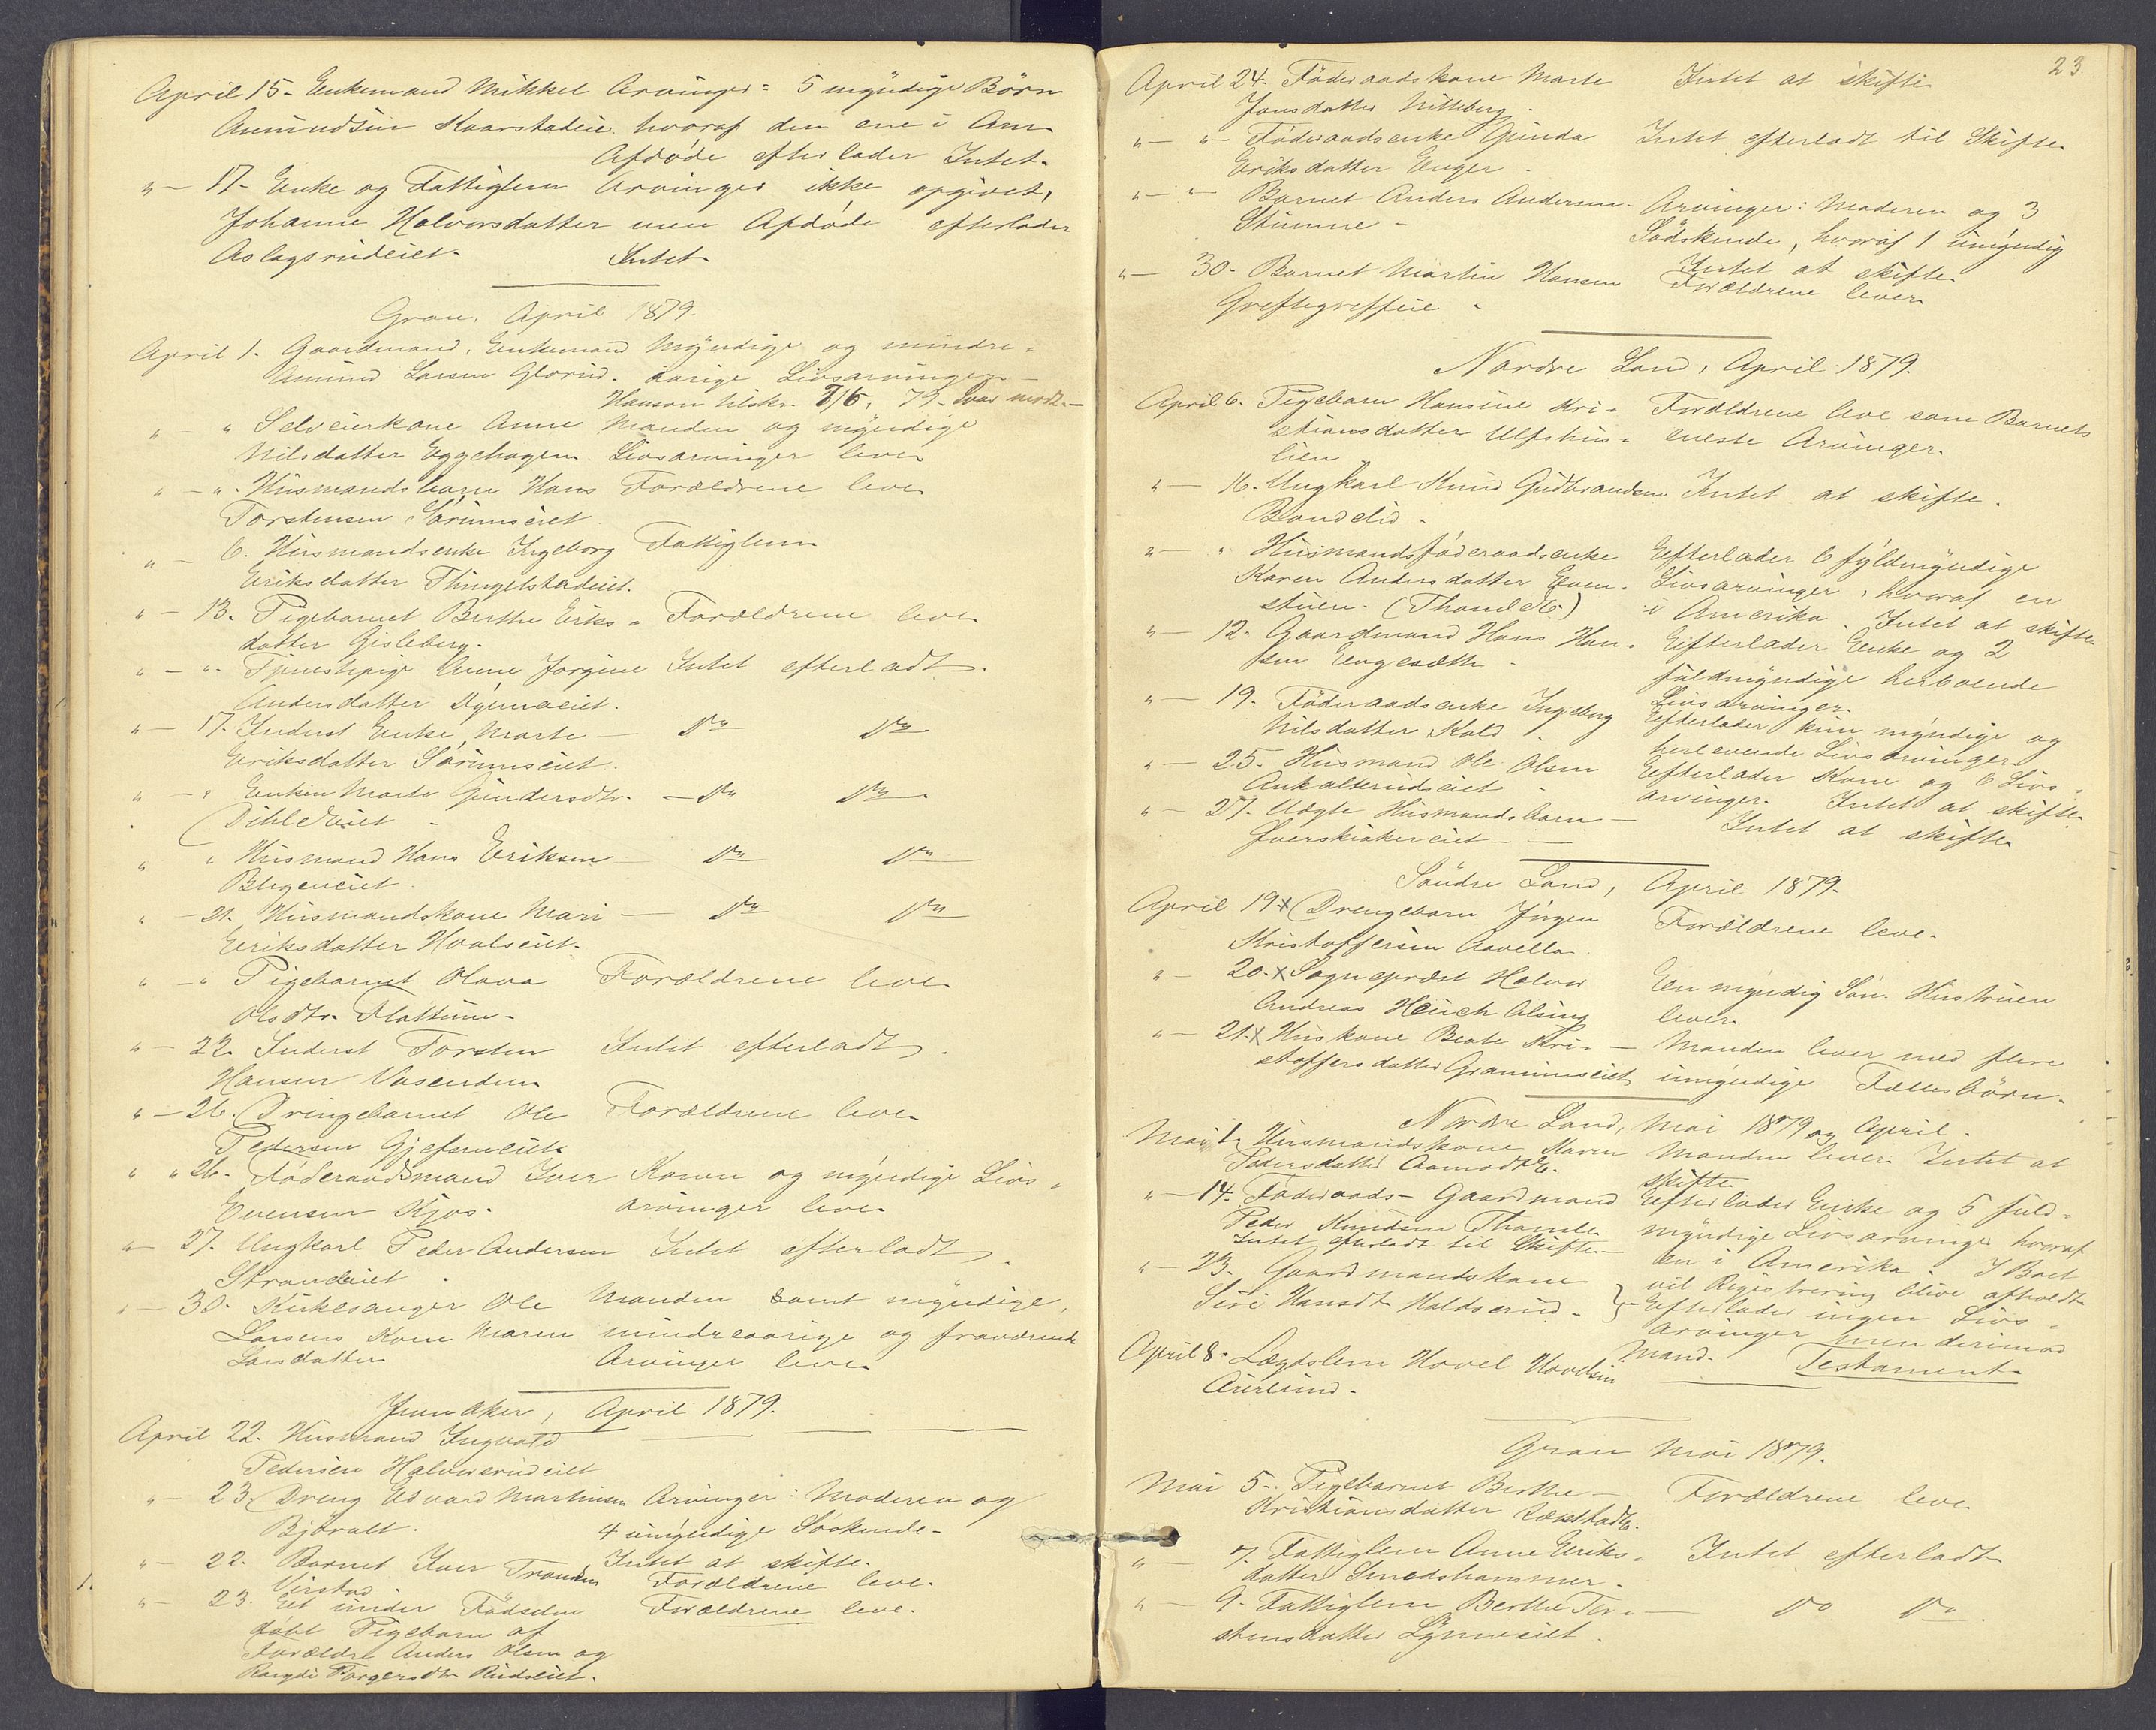 April 15- Enkemand Mikkel Arvinger: 5 myndige Börn
Amundsen Kaarstadeie. hvoraf den ene i Am.
Afdöde efterlader Intet.
" - 17- Enke og Fattiglem Arvinger ikke opgivet,
Johanne Halvorsdatter men Afdöde efterlader
Aslagsrudeiet. Intet.
Gran, April 1879.
April 1. Gaardmand, Enkemand Myndige og mindre-
Amund Larsen Glorud. aarige Livsarvinger -
Hansen tilskr. 7/5, 79. Svar modt.-
" - " Selveierkone Anne Manden og myndige
Nilsdatter Eggehagen. Livsarvinger lever
" - ". Husmandsbarn Hans Forældrene lever
Torstensen Sörumseiet.
" - 6. Husmandsenke Ingeborg Fattiglem
Eriksdatter Thingelstadeiet.
" - 13. Pigebarnet Berthe Eriks- Forældrene lever
datter Gisleberg.
" - ". Tjenestepige Anne Jorgine Intet efterladt.
Andersdatter
" - 17. Inderst Enke, Marte - Do Do
Eriksdatter Sörumseiet.
" - " Enken Marte Gundersdtr. - Do Do.
Dihledeiet -
" " Husmand Hans Eriksen - Do Do
Blegeneiet.
" - 21. Husmandskone Mari - Do Do
Eriksdatter Hvalseiet.
" - " Pigebarnet Olava Forældrene lever
Olsdtr. Flattum-
" - 22. Inderst Torsten Intet efterladt.
Hansen Vasenden
" - 26. Drengebarnet Ole Forældrene lever
Pedersen
" " 26. Föderaadsmand Iver Konen og myndige Livs-
Evensen Kjos. arvinger lever
" - 27. Ungkarl Peder Andersen Intet efterladt.
Strandeiet.
" - 30. Kirkesanger Ole Manden samt myndige,
Larsens Kone Maren mindreaarige og fraværende
Larsdatter Arvinger lever
Jevnaker, April 1879.
April 22. Husmand Ingvald
Pedersen Halvorsrudeiet
" - 23. Dreng Edvard Martinsen Arvinger: Moderen og
Björalt. 4 umyndige Söskende-
Intet at skifte.
" - 22. Barnet Iver Forældrene lever.
Virstad.
" - 23. Et under Födselen Forældrene lever.
död Pigebarn af
Forældre Anders Olsen og
Rangdi Torgersdtr. Rudseiet.
23
April 24. Föderaadskone Marte Intet at skifte
Jonsdatter Nitteberg.
" - " - Föderaadsenke Gunda Intet efterladt til Skifte
Eriksdatter Enger.
" - " Barnet Anders Andersen- Arvinger: Moderen og 3
Stumne - Södskende, hvoraf 1 umyndig
Intet at skifte
" - 30- Barnet Martin Hansen Forældrene lever
Greftegreffeie.
Nordre Land, April 1879.
April 6. Pigebarn Hansine Kri- Forældrene leve som Barnets
stiansdatter Ulfshus- eneste Arvinger.
lien
" - 16. Ungkarl Knud Gudbrandsen Intet at skifte.
Bandelid.
" - " Husmandsföderaadsenke Efterlader 6 fyldmyndige
Karen Andersdatter Even- Livsarvinger, hvoraf en
stuen. (Thomle E.) i Amerika. Intet at skifte
" - 12. Gaardmand Hans Han- Efterlader Enke og 2
sen Engesæth - fuldmyndige herboende
Livsarvinger
" - 19. Föderaadsenke Ingeborg Efterlader kun myndige og
Nilsdatter Kold. herlevende Livsarvinger
" - 25. Husmand Ole Olsen Efterlader Kone og 6 Livs-
arvinger. Intet at skifte
" - 27. Uægte Husmandsbarn - Intet at skifte
Söndre Land, April 1879.
April 19 x Drengebarn Jörgen Forældrene leve.
Kristoffersen Aavella
" - 20. x Sognepræst Halvor En myndig Sön. Hustruen
Andreas lever.
" - 21. x Huskone Beate Kri- - Manden lever med flere
stoffersdatter Grammseiet umyndige Fællesbörn.
Nordre Land, Mai 1879 og April.
Mai 1. Husmandskone Karen Manden lever. Intet at
Pedersdatter Aamodt E. skifte
" - 14. Föderaads- Gaardmand Efterlader Enke og 5 fuld-
Peder Knudsen Thomle myndige Livsarvinger hvoraf
Intet efterladt til Skifte- en i Amerika. I Boet
vil Registrering blive afholdt
" - 23. Gaardmandskone Efterlader ingen Livs-
Siri Hansdtr. - arvinger men derimod
Mand. Testament.
April 8. Lægdslem Hovel Hovelsen
Gran Mai 1879.
Mai 5-. Pigebarnet Berthe - Forældrene leve
Kristiansdatter
" - 7. Fattiglem Anne Eriks- Intet efterladt
datter Smedshammer.
" - 9. Fattiglem Berthe Tor- - Do Do.
stensdatter